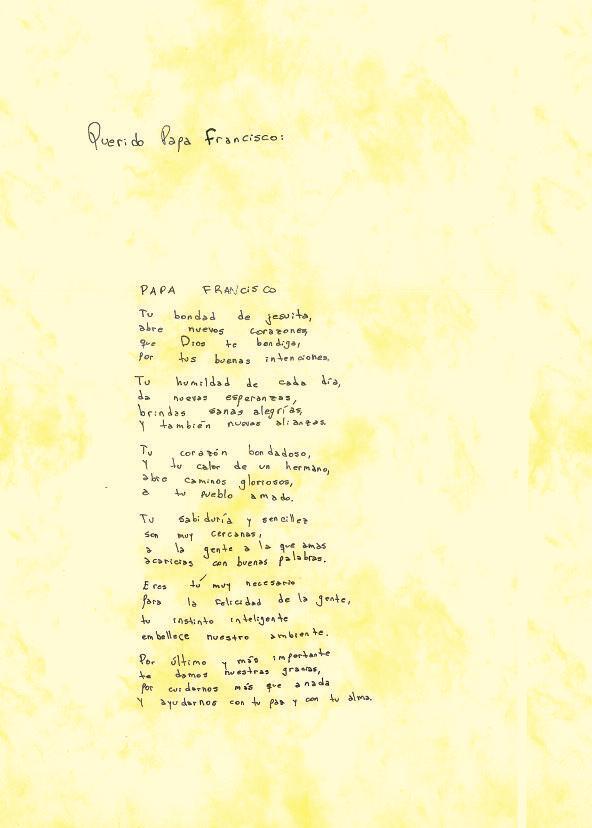 Querido Papa Francisco:
PAPA FRANCISCO
Tu bondad de jesuita,
abre nuevos corazones,
que Dios te bendiga,
por tus buenas intenciones.
Tu humildad de cada día,
da nuevas esperanzas,
brindas sanas alegrías,
y también nuevas alianzas.
Tu corazón bondadoso,
y tu calor de un hermano,
abre caminos gloriosos,
a tu pueblo amado.
Tu sabiduría y sencillez
son muy cercanas,
a la gente a la que amas
acaricias con buenas palabras.
Eres tú muy necesario
para la felicidad de la gente,
tu instinto inteligente
embellece nuestro ambiente.
Por último y más importante
te damos nuestras gracias,
por cuidarnos más que a nada
y ayudarnos con tu paz y con tu alma.